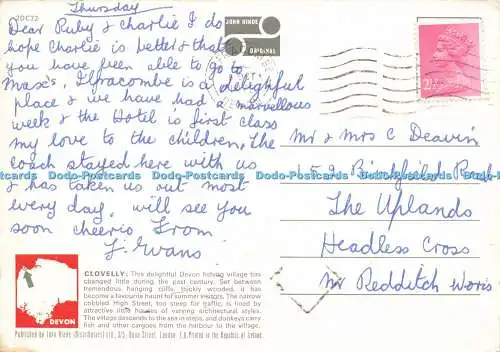 Thursday
2DC72
Dear Ruby & Charlie I do
hope Charlie is better & that
you have been able to go to
Max's, Ilfracombe is a delightful
place & we have had a marvellous
week & the Hotel is first class
my love to the children, The
coach stayed here with us
& has taken us out most
every day, will see you
soon cheerio from
J. Evans
JOHN HINDE
ORIGINAL
2½
Mr & Mrs C Deavin
159 Birchfield Road
The Uplands
Headless Cross
Nr Redditch Worcs
CLOVELLY: This delightful Devon fishing village has
changed little during the past century. Set between
tremendous hanging cliffs, thickly wooded, it has
become a favourite haunt for summer visitors. The narrow
cobbled High Street, too steep for traffic, is lined by
attractive little houses of varying architectural styles.
The village descends to the sea in steps, and donkeys carry
fish and other cargoes from the harbour to the village.
DEVON
Published by John Hinde (Distributors) Ltd., 3/5, Dean Street, London, I.O. Printed in the Republic of Ireland.
Dodo-Postcards Dodo-Postcards Dodo-Postcards Dodo-Postcards